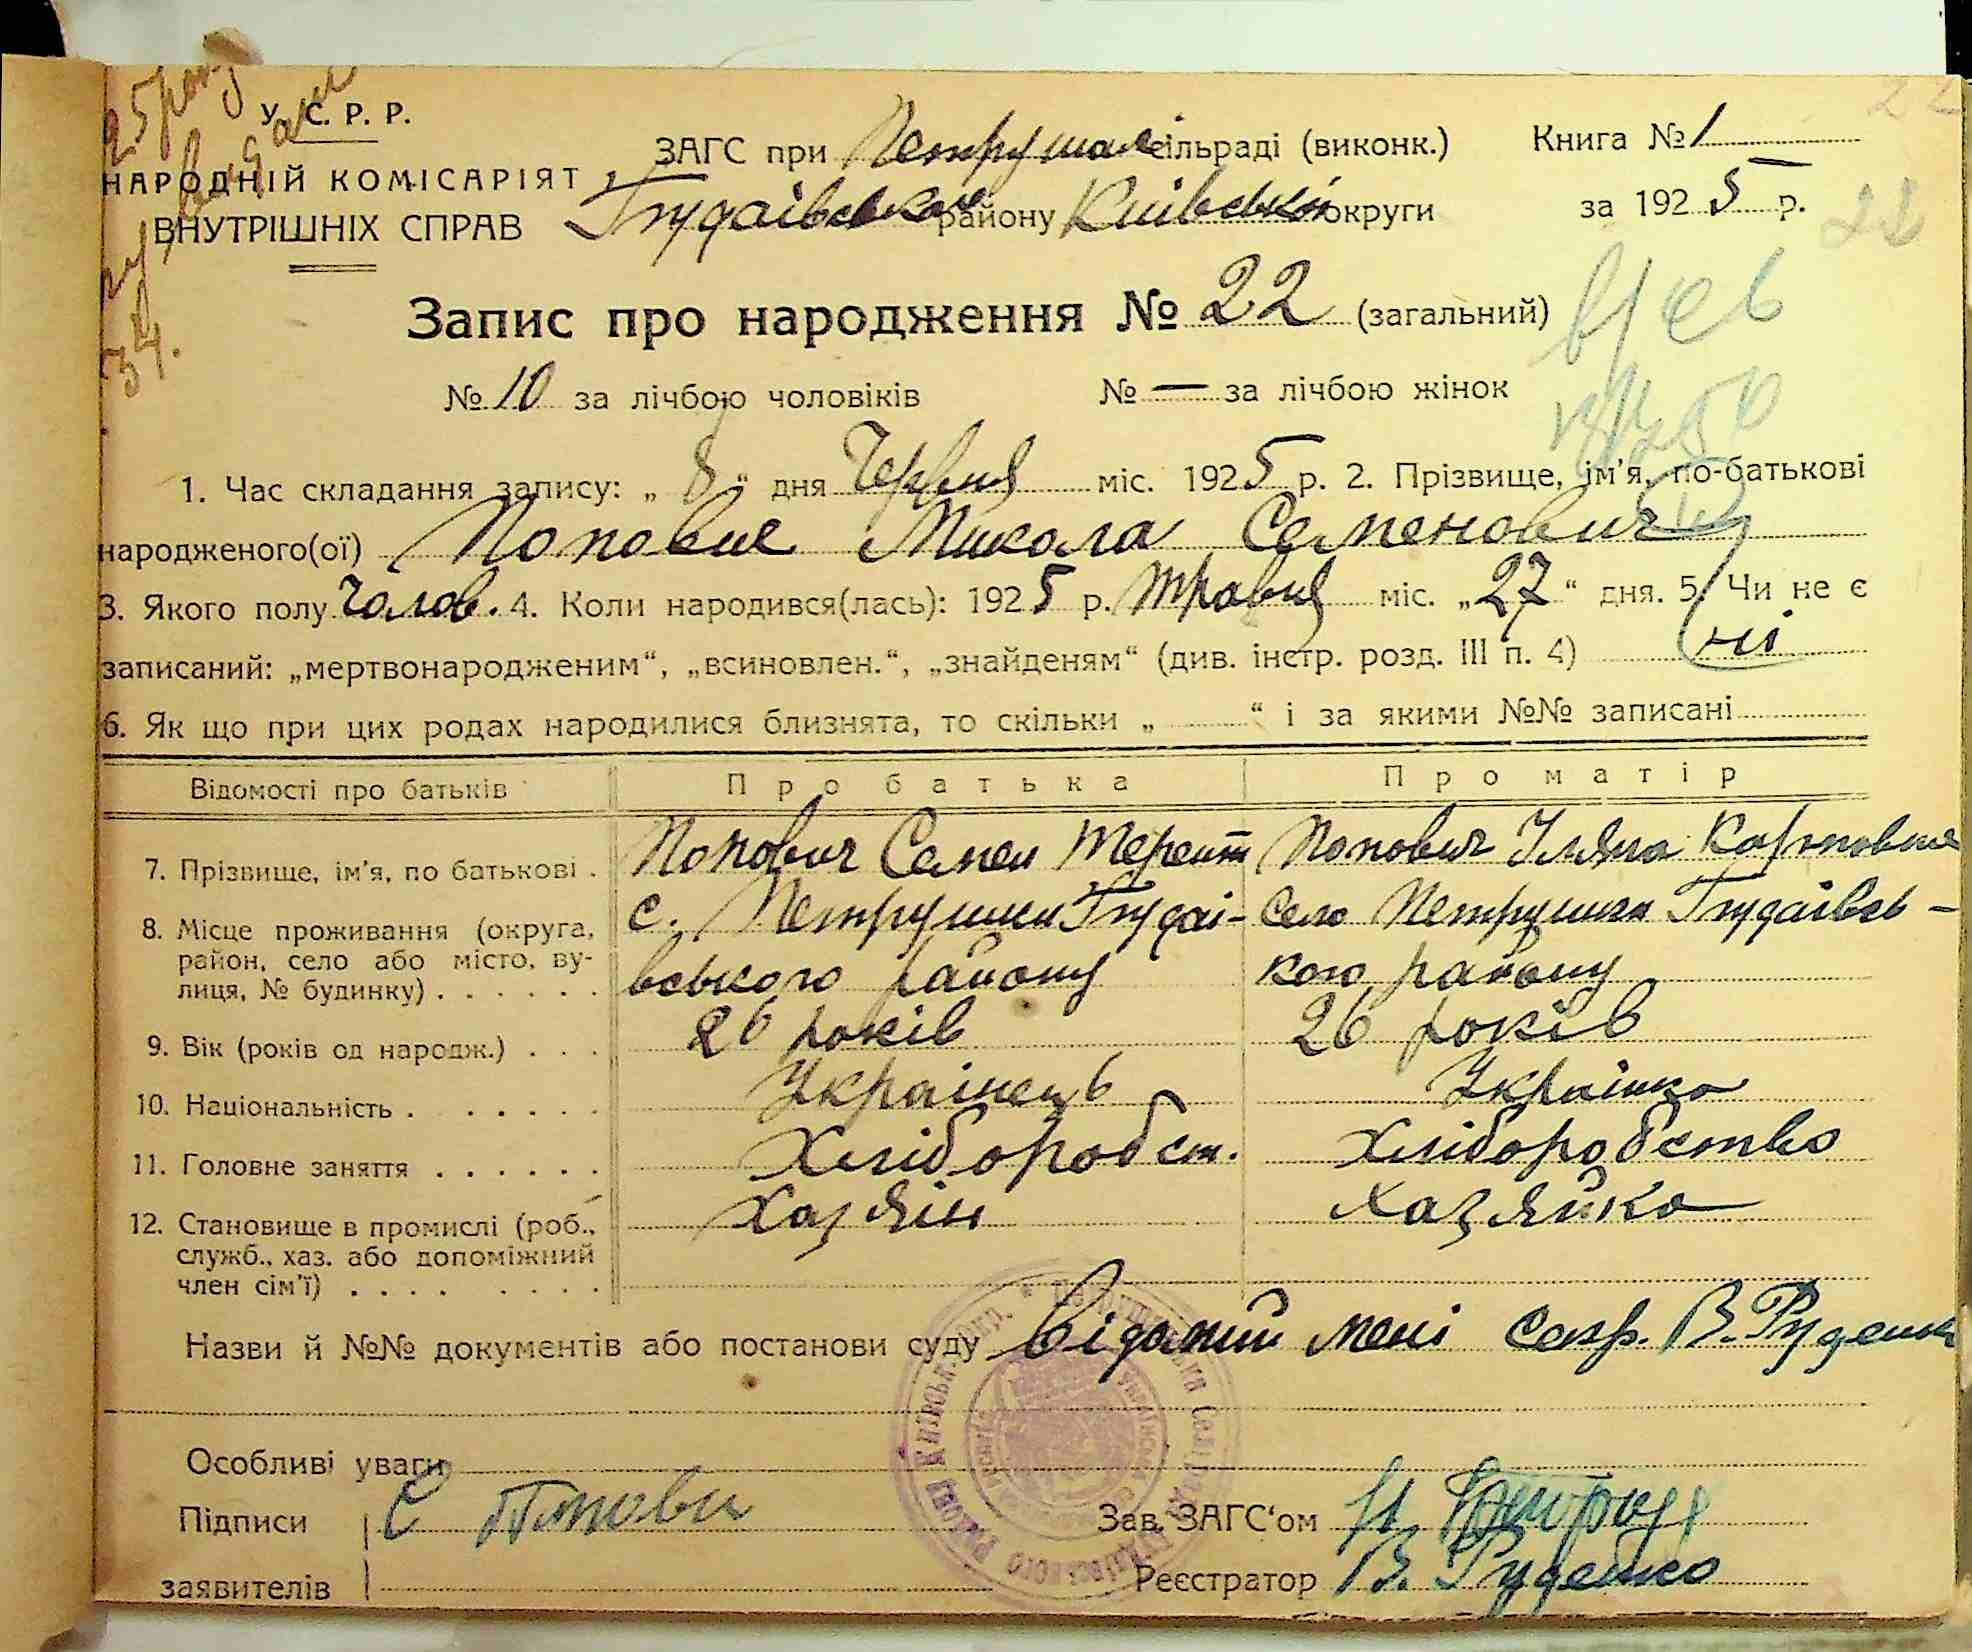 У. С. Р. Р.
НАРОДНІЙ КОМІСАРІЯТ
ВНУТРІШНІХ СПРАВ
ЗАГС при Петрушк сільраді (виконк.)
району Київської округи
Книга № 1
за 1925 р.
22
Запис про народження № 22 (загальний)
№ 10 за лічбою чоловіків № — за лічбою жінок
1. Час складання запису: „ 8 “ дня Червня міс. 1925 р. 2. Прізвище, ім'я, по-батькові
народженого(ої) Попович Микола Семенович
3. Якого полу Чолов. 4. Коли народився(лась): 1925 р. травня міс. „27“ дня. 5. Чи не є
записаний: „мертвонародженим“, „всиновлен.“, „знайденям“ (див. інстр. розд. III п. 4) ні
6. Як що при цих родах народилися близнята, то скільки „ “ і за якими №№ записані
Відомості про батьків Про батька Про матір
7. Прізвище, ім'я, по батькові . Попович Семен Терент Попович Уляна Карповна
8. Місце проживання (округа, район, село або місто, вулиця, № будинку) с. Петрушки Будаї- Село Петрушки Будаївсь-
вського району кого району
9. Вік (років од народж.) . . . 26 років 26 років
10. Національність . . . . . . . Українець Українка
11. Головне заняття . . . . . . Хліборобст. Хліборобство
12. Становище в промислі (роб., служб., хаз. або допоміжний член сім'ї) . . . . Хазяїн Хазяйка
Назви й №№ документів або постанови суду Відомий мені секр. В. Руденко
Особливі уваги
Підписи С Попови
заявителів
Зав. ЗАГС'ом
Реєстратор В. Руденко